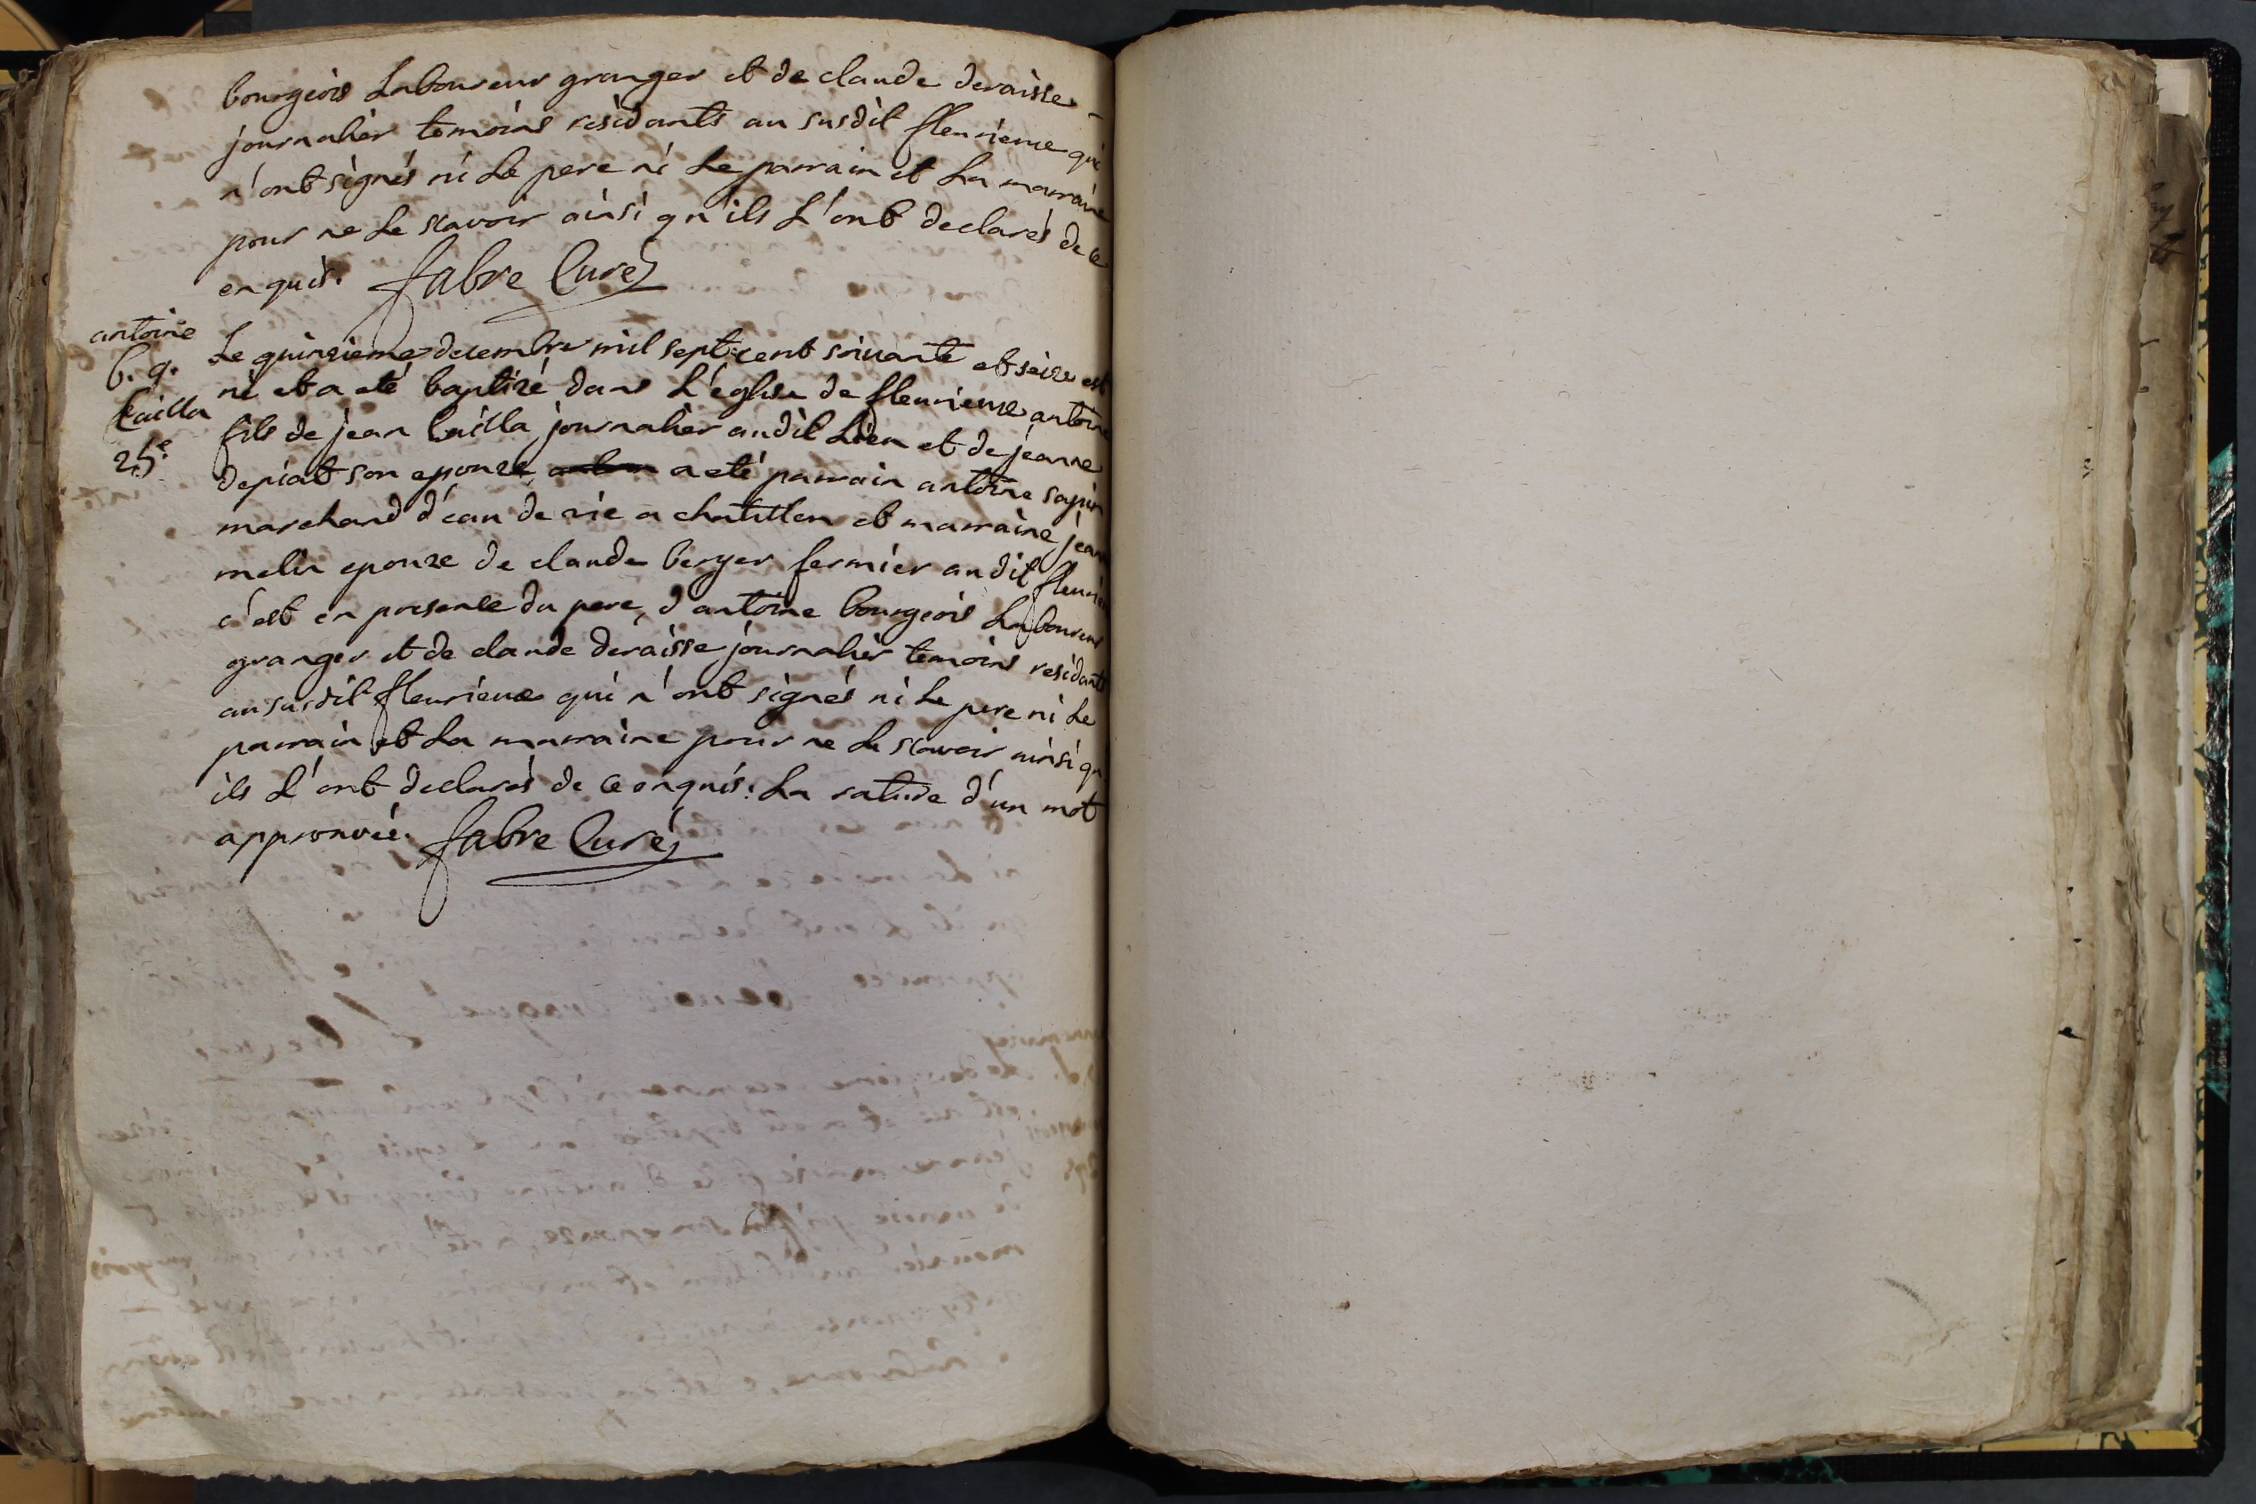 bourgeois Laboureur granger et de claude deraisse
journalier temoins residants au susdit fleurieux qui
n'ont signés ni Le pere ni Le parrain et La marraine
pour ne Le scavoir ainsi qu'ils L'ont declarés de ce
enquis. fabre Curé
antoine
b. g.
Cailla
25e
Le quinzieme decembre mil sept cent soixante et seize est
né et a eté baptizé dans L'eglise de fleurieux antoine
fils de jean Cailla journalier audit Lieu et de jeanne
depiat son epouze, a eté parrain antoine sapin
marchand d'eau de vie a chatillon et marraine jeanne
melin epouze de claude berger fermier audit fleurieux
c'est en presence du pere, d'antoine bourgeois Laboureur
granger et de claude deraisse journalier temoins residants
au susdit fleurieux qui n'ont signés ni Le pere ni Le
parrain et La marraine pour ne Le scavoir ainsi qu
ils L'ont declarés de ce enquis. La rature d'un mot
approuvée. fabre Curé